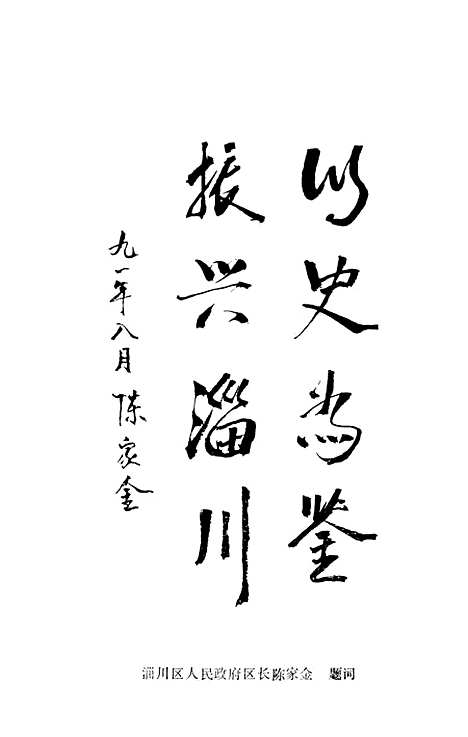 以史为鉴
振兴淄川
九一年八月 陈家金
淄川区人民政府区长陈家金 题词